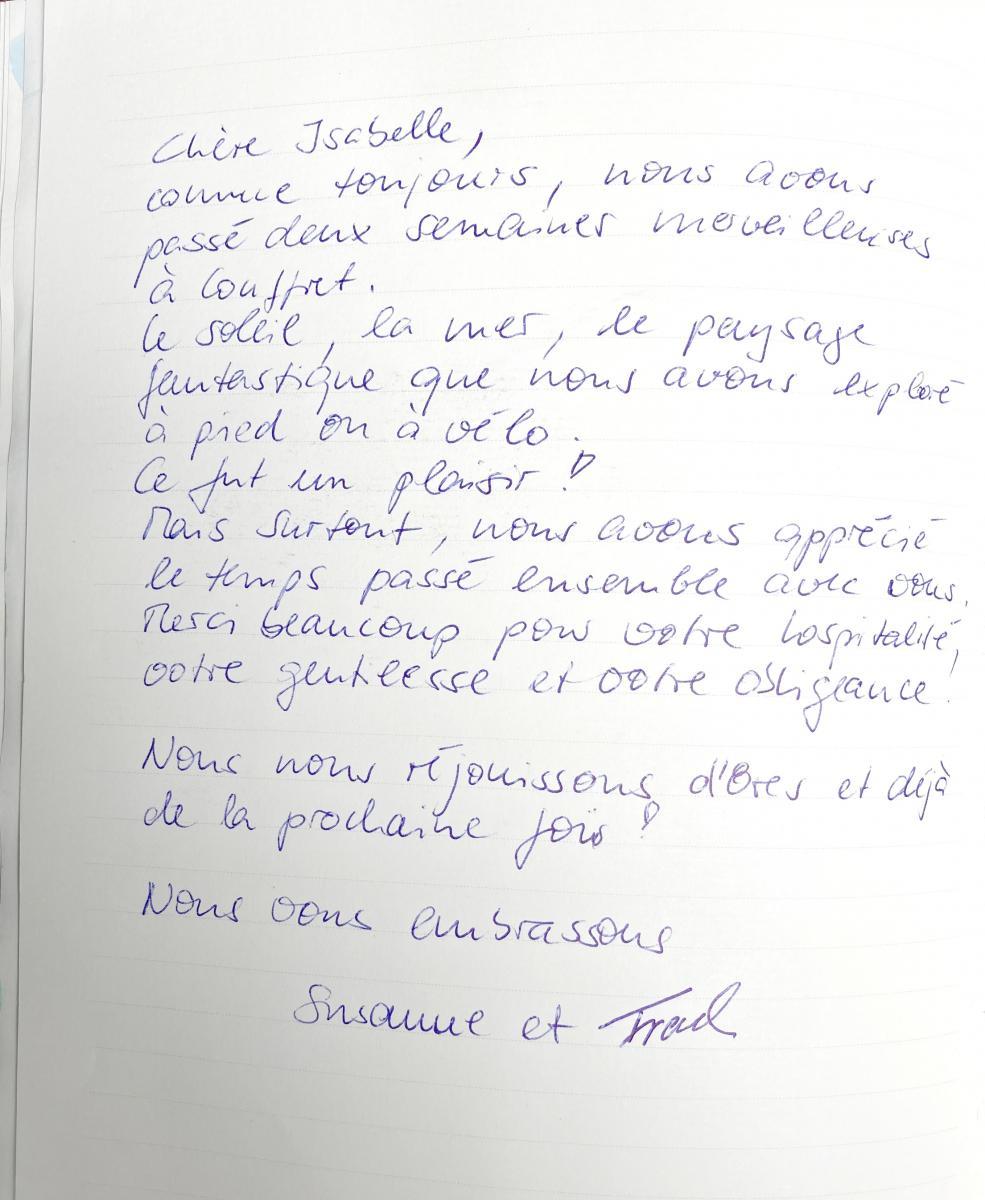 Chère Isabelle,
comme toujours, nous avons
passé deux semaines merveilleuses
à Couffret.
Le soleil, la mer, le paysage
fantastique que nous avons exploré
à pied ou à vélo.
Ce fut un plaisir !
Mais surtout, nous avons apprécié
le temps passé ensemble avec vous.
Merci beaucoup pour votre hospitalité,
votre gentilesse et votre obligeance !
Nous nous réjouissons d'Ores et déjà
de la prochaine fois !
Nous vous embrassons
Susanne et